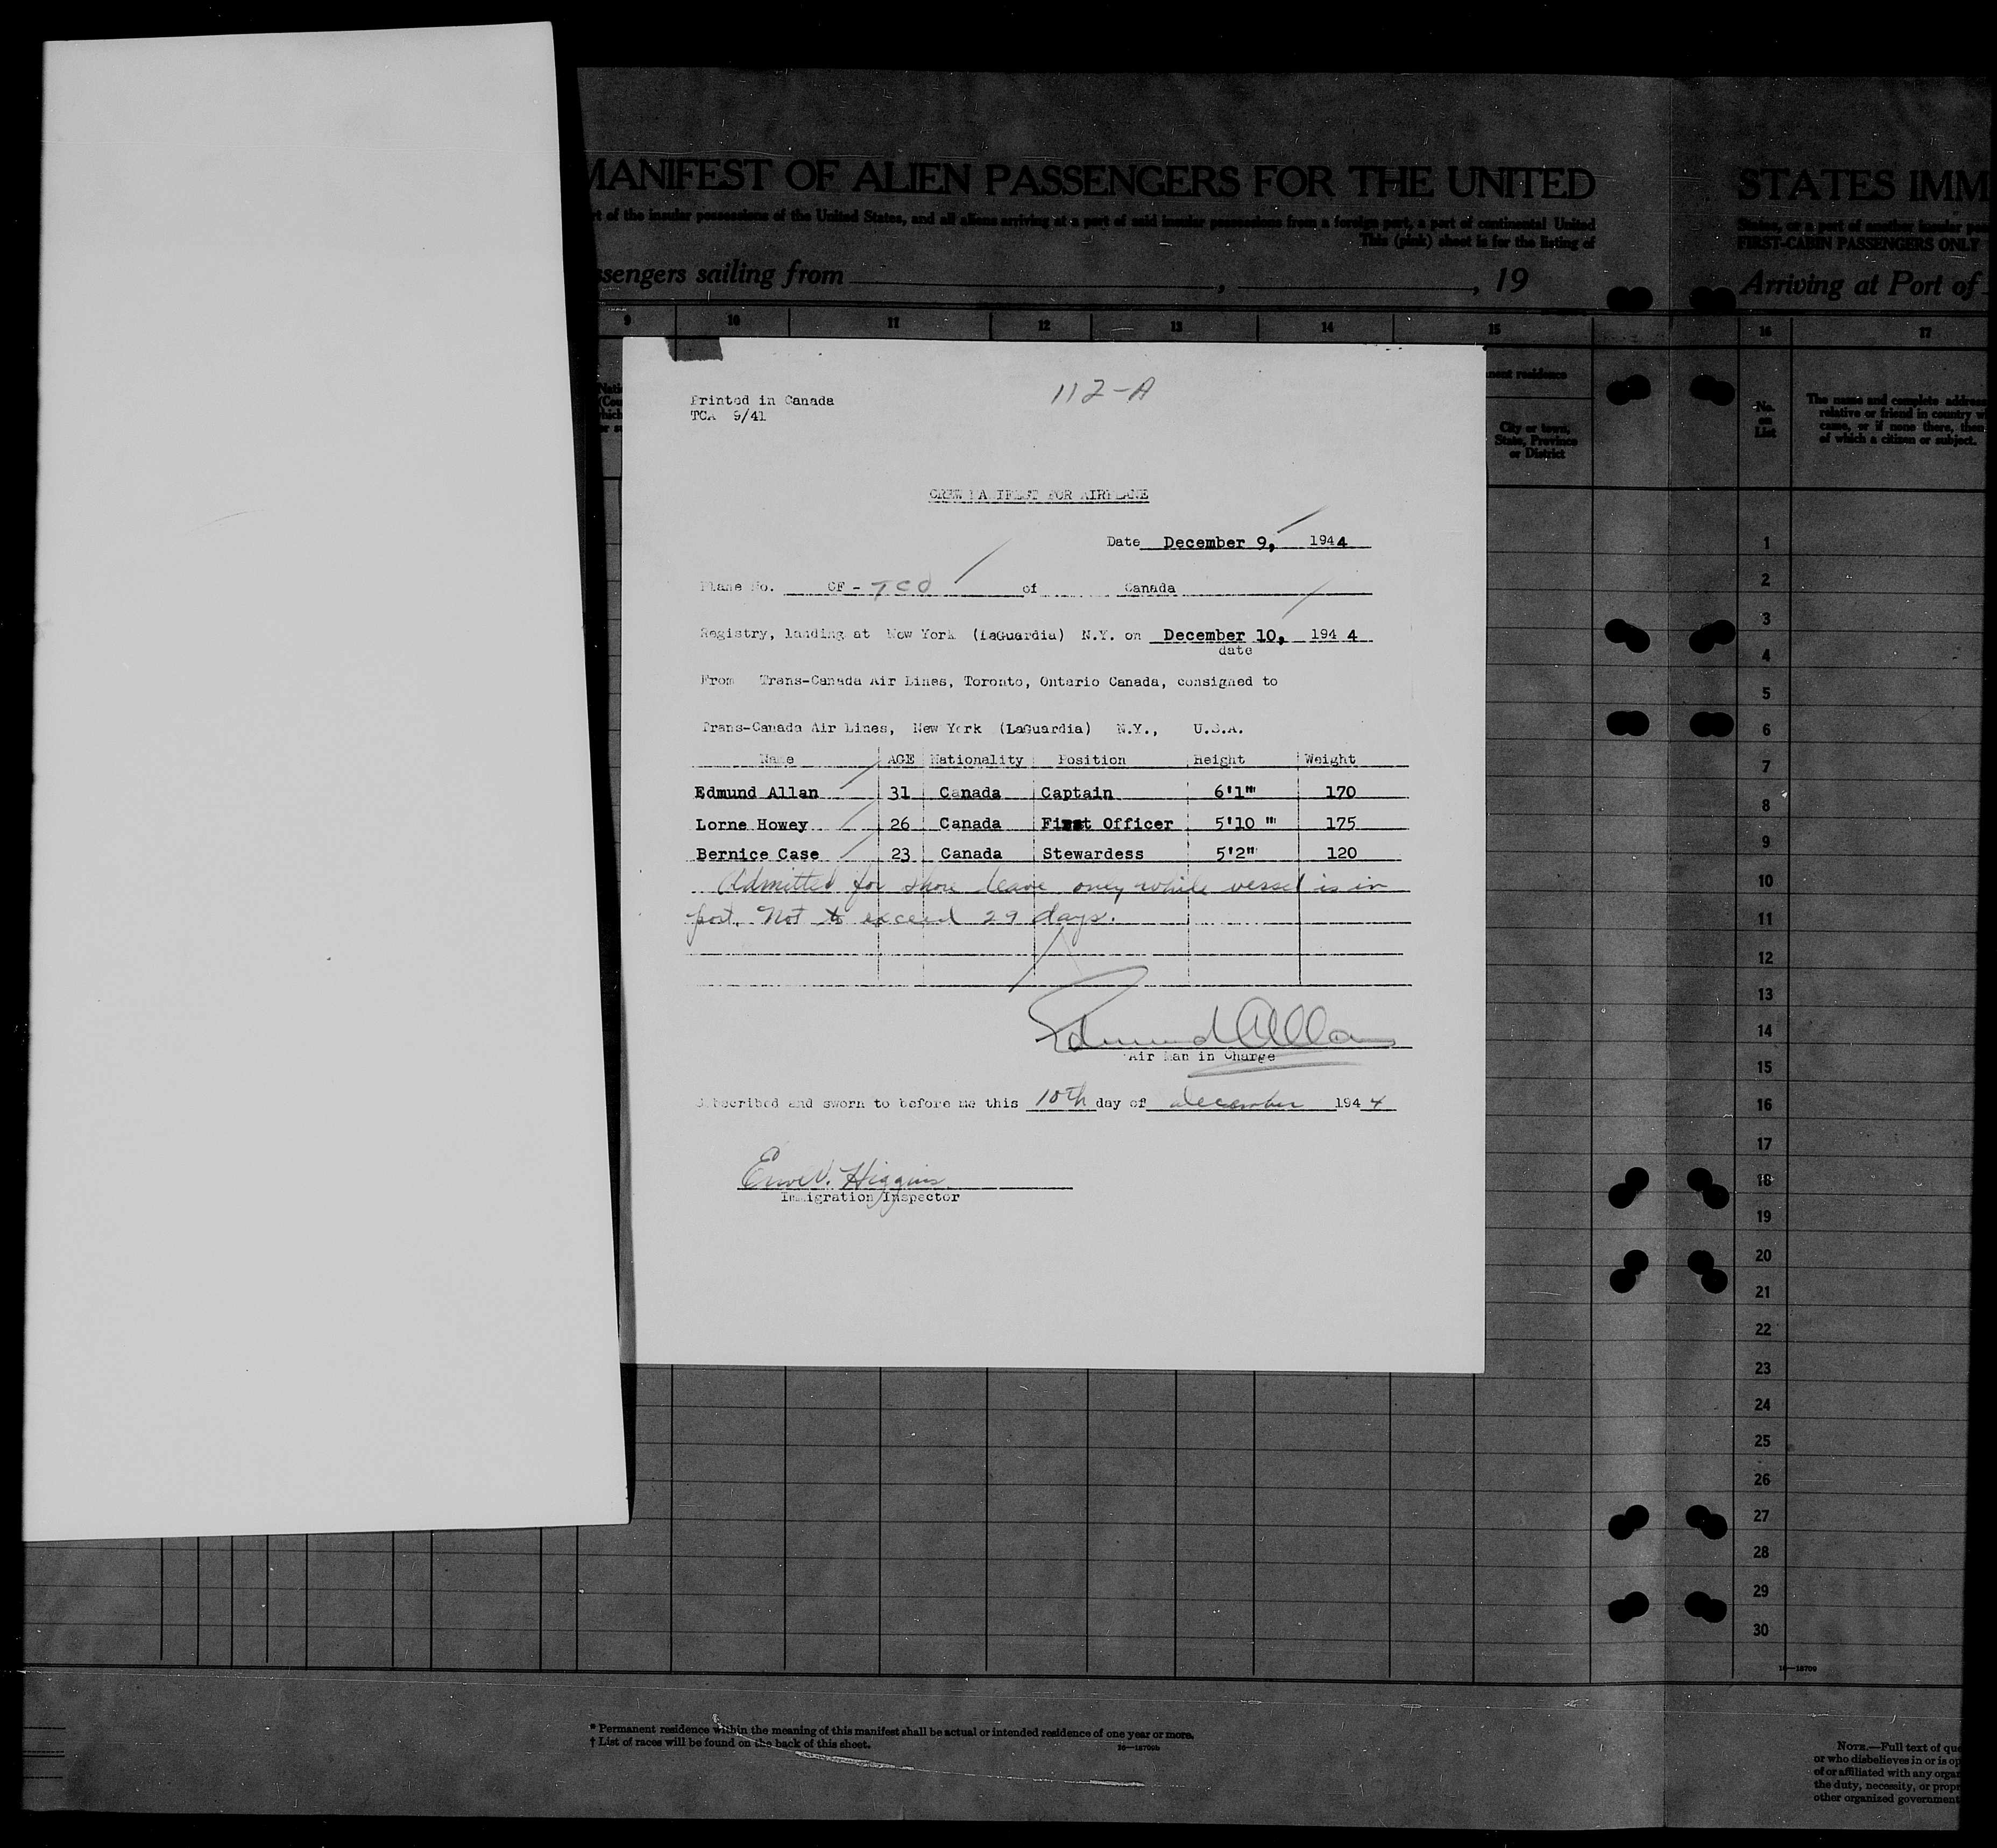 MANIFEST OF ALIEN PASSENGERS FOR THE UNITED
rt of the insular possessions of the United States, and all aliens arriving at a port of said insular possessions from a foreign port, a port of continental United
This (pink) sheet is for the listing of
ssengers sailing from , , 19
9 10 11 12 13 14 15
nent residence
City or town,
State, Province
or District
Printed in Canada
TCA 9/41
112-A
CREW MANIFEST FOR AIRPLANE
Date December 9, 1944
Plane No. CF - TCO of Canada
Registry, landing at New York (LaGuardia) N.Y. on December 10, 194 4
date
From Trans-Canada Air Lines, Toronto, Ontario Canada, consigned to
Trans-Canada Air Lines, New York (LaGuardia) N.Y., U.S.A.
Name AGE Nationality Position Height Weight
Edmund Allan 31 Canada Captain 6'1"' 170
Lorne Howey 26 Canada First Officer 5'10 "' 175
Bernice Case 23 Canada Stewardess 5'2"' 120
Admitted for shore leave only while vessel is in
port. Not to exceed 29 days.
Edmund Allan
Air Man in Charge
Subscribed and sworn to before me this 10th day of december 194 4
Higgins
Immigration Inspector
* Permanent residence within the meaning of this manifest shall be actual or intended residence of one year or more.
† List of races will be found on the back of this sheet.
STATES IMM
States, or a port of another insular pos
FIRST-CABIN PASSENGERS ONLY
Arriving at Port of
16 17
No.
on
List
The name and complete address
relative or friend in country w
came, or if none there, then
of which a citizen or subject.
1
2
3
4
5
6
7
8
9
10
11
12
13
14
15
16
17
18
19
20
21
22
23
24
25
26
27
28
29
30
16—18709
NOTE.—Full text of que
or who disbelieves in or is op
of or affiliated with any organ
the duty, necessity, or propr
other organized government